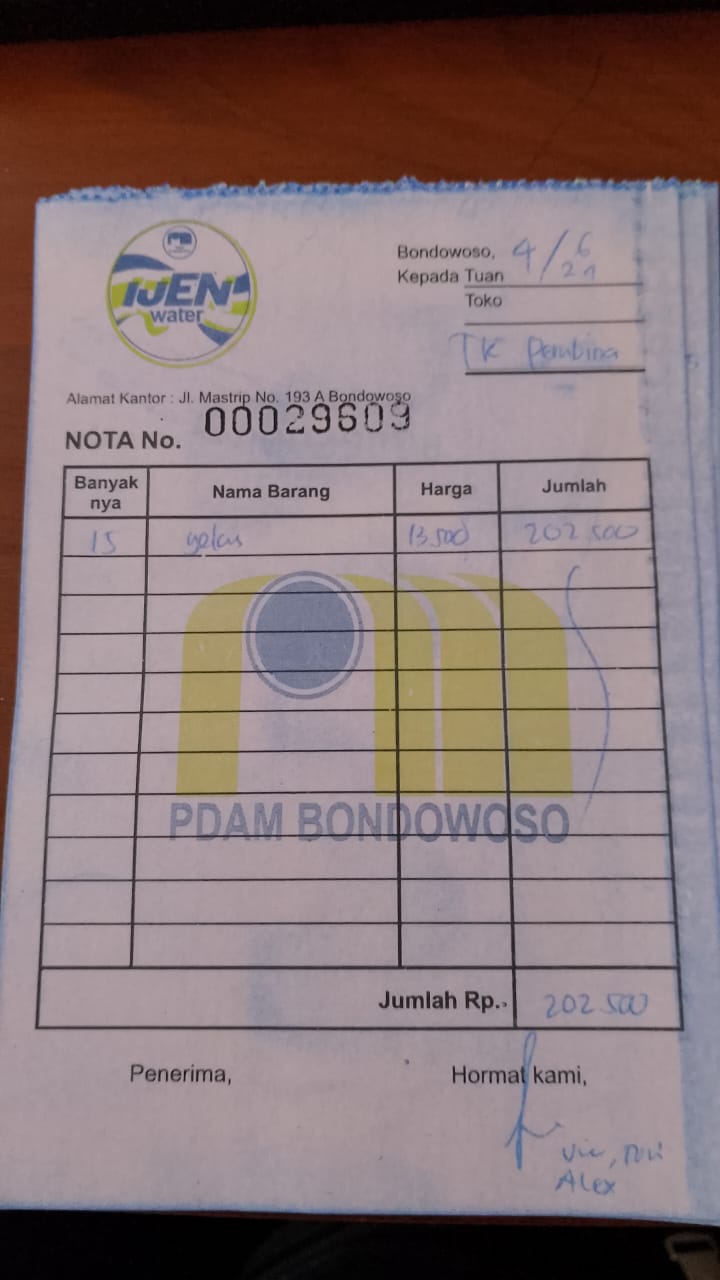 IJEN
water
Bondowoso, 4/6
21
Kepada Tuan
Toko
TK Pembina
Alamat Kantor : Jl. Mastrip No. 193 A Bondowoso
NOTA No. 00029609
Banyak nya Nama Barang Harga Jumlah
15 gelas 13.500 202.500
PDAM BONDOWOSO
Jumlah Rp. 202.500
Penerima, Hormat kami,
Alex